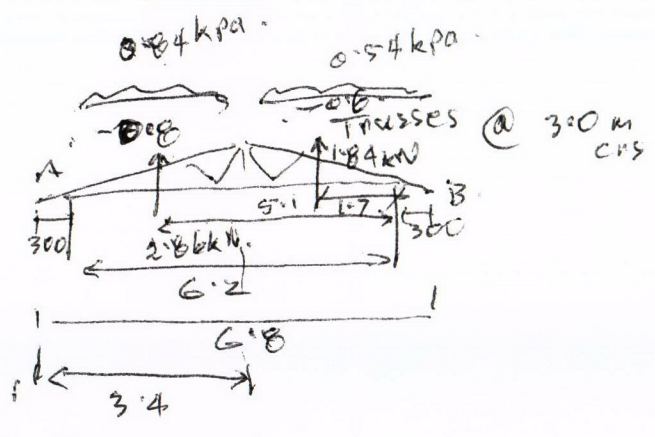 0.84 kpa.
0.54 kpa.
-0.8
-0.6
Trusses @ 3.0 m
crs
A
1.84 kN
B
5.1
1.7
300
300
2.86 kN.
6.2
6.8
3.4